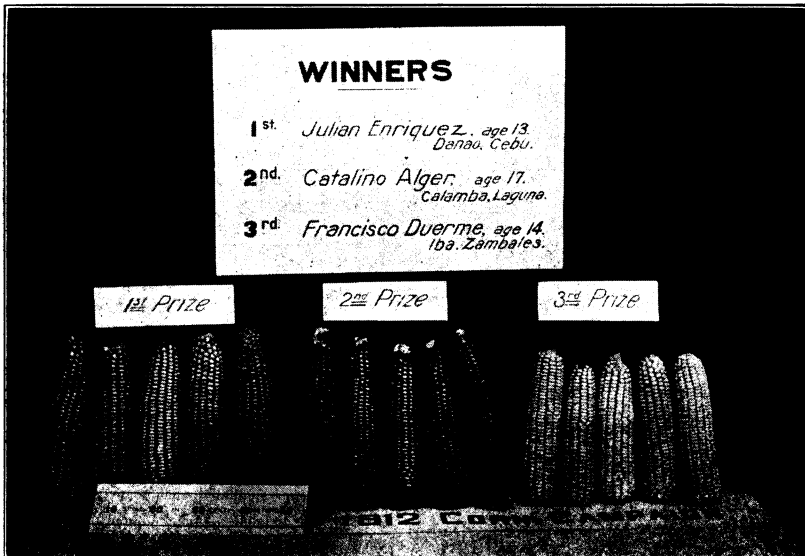 WINNERS
1st. Julian Enriquez, age 13.
Danao, Cebu.
2nd. Catalino Alger, age 17.
Calamba, Laguna.
3rd. Francisco Duerme, age 14.
Iba, Zambales.
1st Prize
2nd Prize
3rd Prize